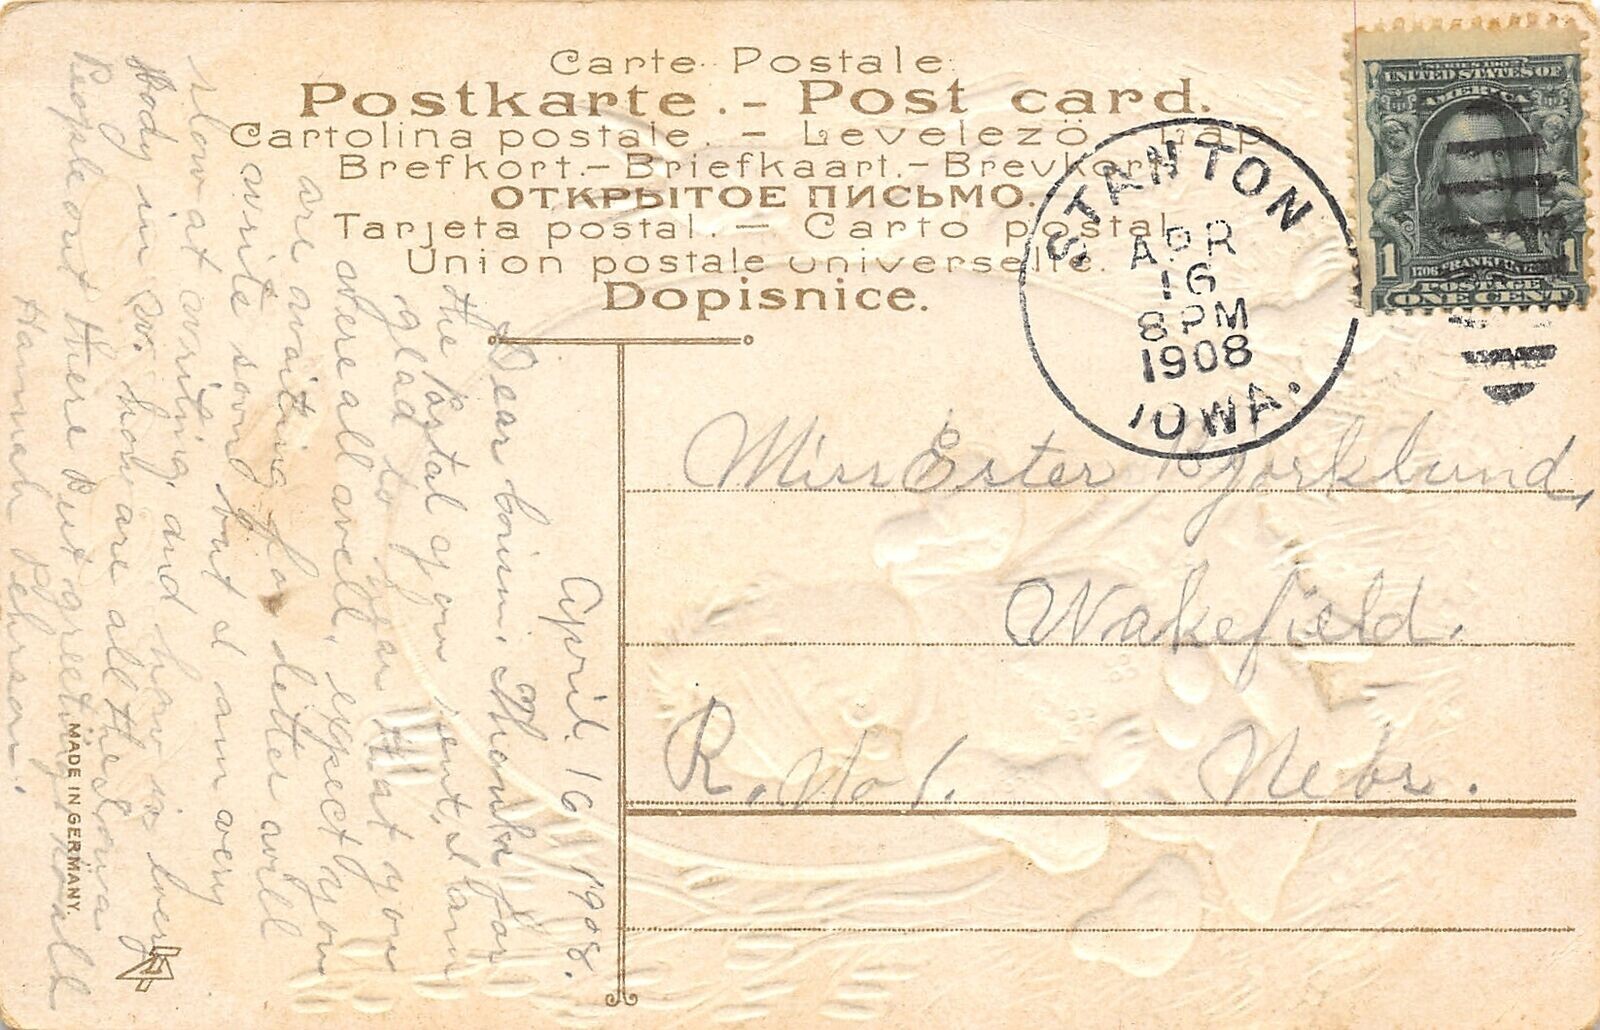 Carte Postale.
Postkarte. - Post card.
Cartolina postale. - Levelező Lap
Brefkort.- Briefkaart.- Brevkort
ОТКРЫТОЕ ПИСЬМО.
Tarjeta postal. - Carto postal.
Union postale universelle.
Dopisnice.
STANTON
APR
16
8 PM
1908
IOWA.
SERIES 1902
UNITED STATES OF
AMERICA
1 1
1706 FRANKLIN
POSTAGE
ONE CENT
April. 16 1908.
Dear Cousin, Thanks for
the postal you sent, I am
glad to hear that you
where all well, expect you
are waiting for letter will
write soon but I am very
slow at writing, and how is every
Body in sw. how are all the Iowa
People out there But greetings to all
Hannah Pehrson.
Miss Ester Bjorklund,
Wakefield.
R. No 1. Nebr.
MADE IN GERMANY.